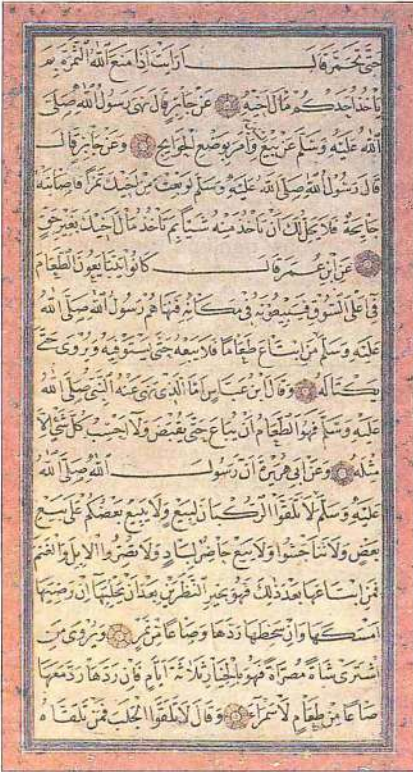 حتى تحمر قال أرأيت إذا منع الله الثمرة بم
يأخذ أحدكم مال أخيه عن جابر قال نهى رسول الله صلى
الله عليه وسلم عن بيع وأمر بوضع الجوايح وعن جابر قال
قال رسول الله صلى الله عليه وسلم لو بعت من أخيك تمرا فأصابته
جايحة فلا يحل لك أن تأخذ منه شيئا بم تأخذ مال أخيك بغير حق
عن ابن عمر قال كانوا يبتاعون الطعام
في أعلى السوق فيبيعونه في مكانه فنهاهم رسول الله صلى الله
عليه وسلم من ابتاع طعاما فلا يبعه حتى يستوفيه ويروى حتى
يكتاله وقال ابن عباس أما الذي نهى عنه النبي صلى الله
عليه وسلم فهو الطعام أن يباع حتى يقبض ولا أحسب كل شيء إلا
مثله وعن أبي هريرة أن رسول الله صلى الله
عليه وسلم لا تلقوا الركبان لبيع ولا يبيع بعضكم على بيع
بعض ولا تناجشوا ولا يبيع حاضر لباد ولا تصروا الإبل والغنم
فمن ابتاعها بعد ذلك فهو بخير النظرين بعد أن يحلبها إن رضيها
أمسكها وإن سخطها ردها وصاعا من تمر ويروى من
اشترى شاة مصراة فهو بالخيار ثلاثة أيام فإن ردها رد معها
صاعا من طعام لا سمراء وقال لا تلقوا الجلب فمن تلقاه